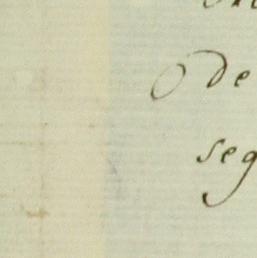 O de
seg